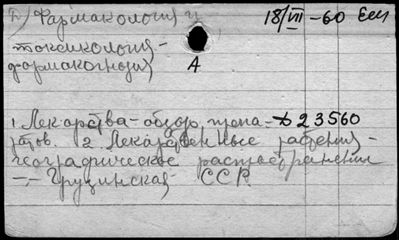 Фармакология и 18/VII -60 Ееи
токсикология-
фармакогнозия А
1. Лекарства-обзор препа- Д23560
ратов. 2. Лекарственные растения-
географическое распространение
-,- Грузинская ССР.